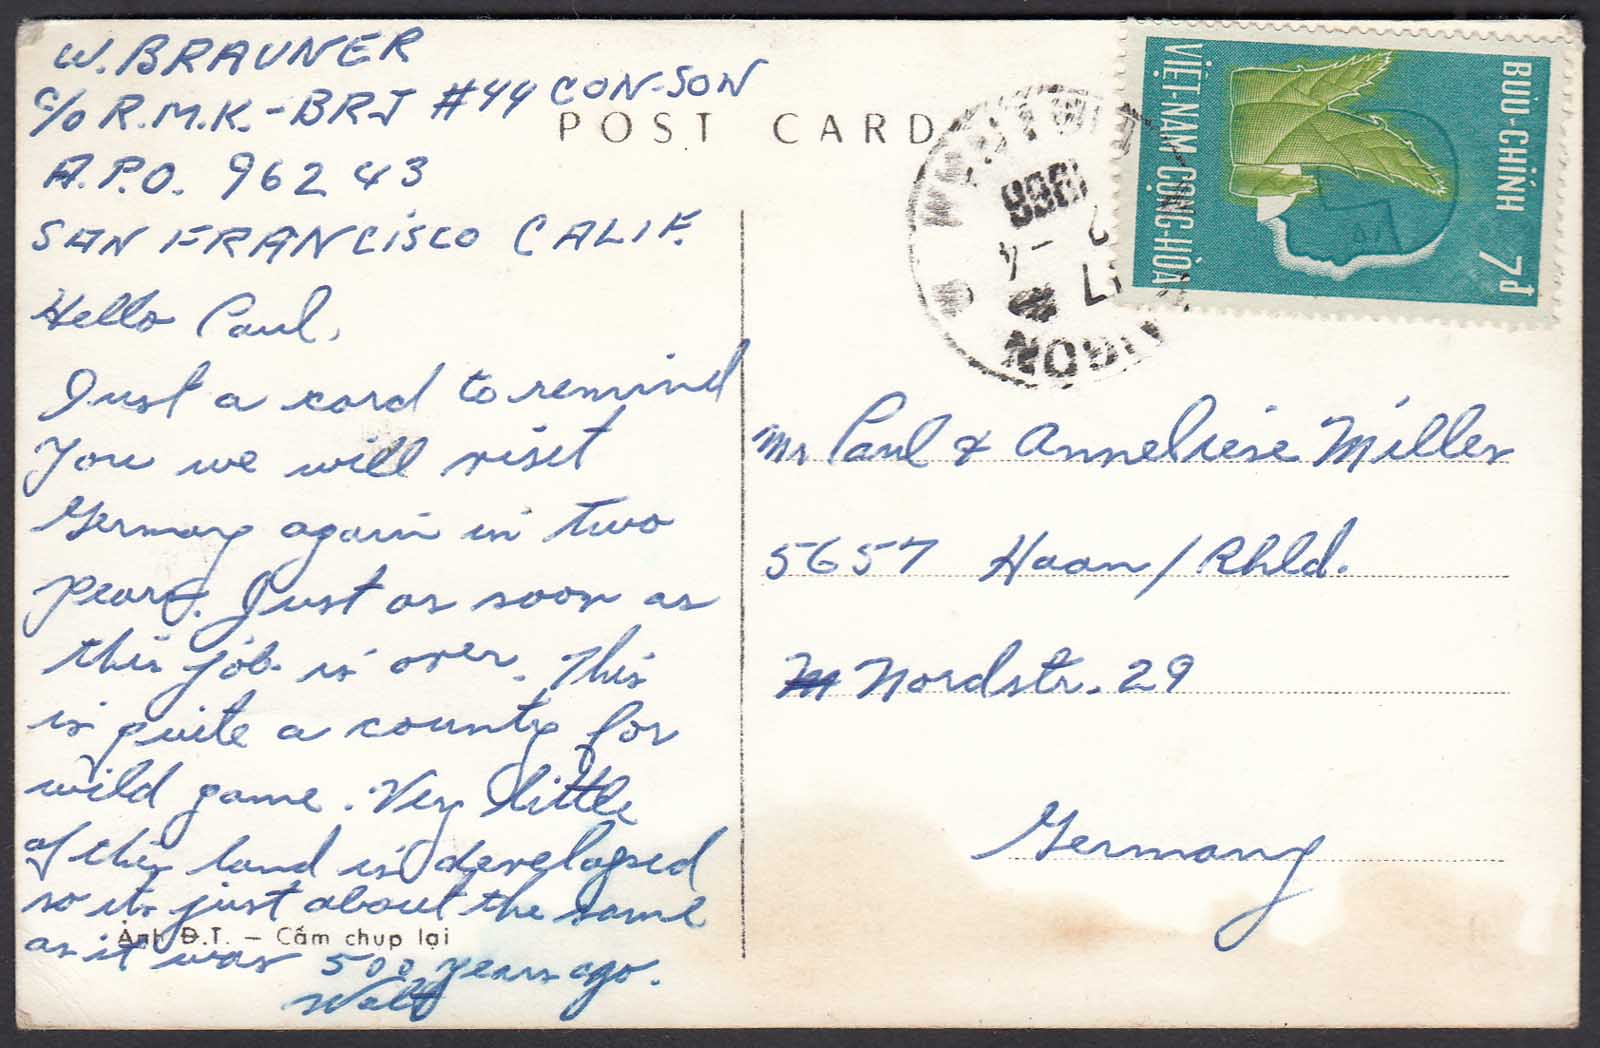 W. BRAUNER
c/o R.M.K.-BRJ #44 CON-SON
A.P.O. 96243
SAN FRANCISCO CALIF.
POST CARD
Hello Paul,
Just a card to remind
you we will visit
Germany again in two
years. Just as soon as
this job is over. This
is quite a country for
wild game. Very little
of this land is developed
so its just about the same
as it was 500 years ago.
Walt
Ảnh Đ.T. – Cấm chụp lại
BƯU-CHÍNH 7đ
VIỆT-NAM CỘNG-HÒA
SAIGON
17
1966
Mr Paul & Anneliese Miller
5657 Haan/Rhld.
Nordstr. 29
Germany